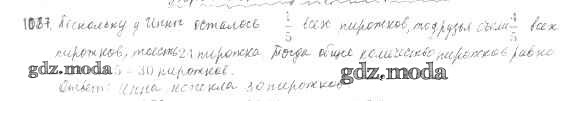 1087. Поскольку у Инны осталось 1/5 всех пирожков, то друзья съели 4/5 всех
пирожков, то есть 24 пирожка. Тогда общее количество пирожков равно
gdz.moda 5 = 30 пирожков. gdz.moda
Ответ: Инна испекла 30 пирожков